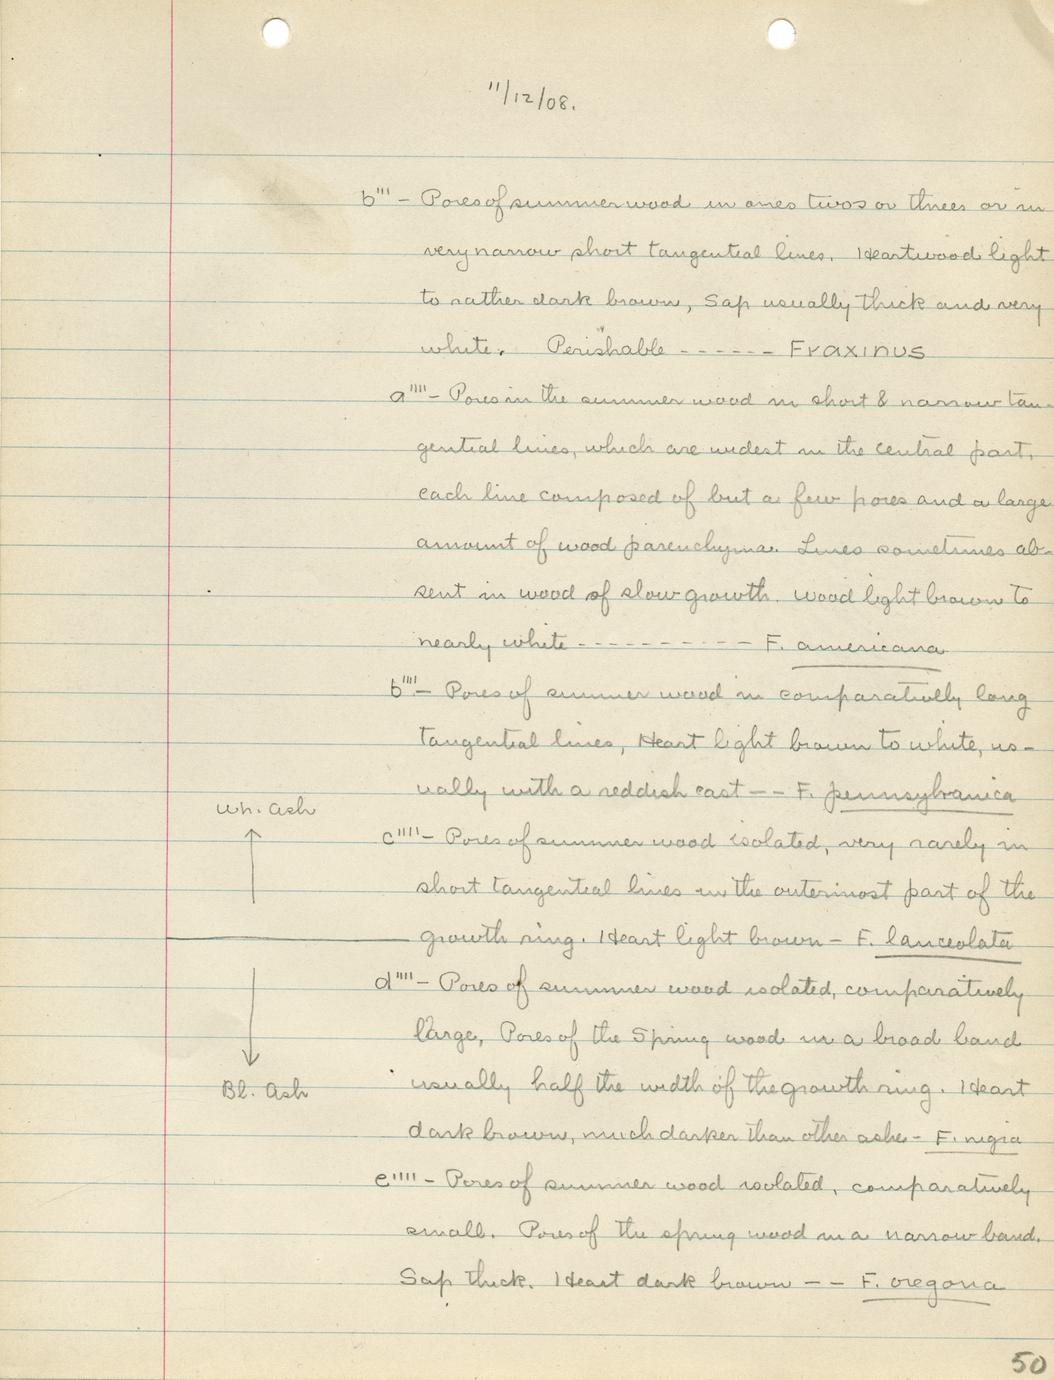 11/12/08.
b''' - Pores of summer wood in ones twos or threes or in
very narrow short tangential lines. Heartwood light
to rather dark brown, Sap usually thick and very
white. Perishable ------ Fraxinus
a'''' - Pores in the summer wood in short & narrow tan-
gential lines, which are widest in the central part,
each line composed of but a few pores and a large
amount of wood parenchyma. Lines sometimes ab-
sent in wood of slow growth. Wood light brown to
nearly white ---------- F. americana
b'''' - Pores of summer wood in comparatively long
tangential lines, Heart light brown to white, us-
ually with a reddish cast -- F. pennsylvanica
Wh. Ash
c'''' - Pores of summer wood isolated, very rarely in
short tangential lines in the outermost part of the
growth ring. Heart light brown - F. lanceolata
d'''' - Pores of summer wood isolated, comparatively
large, Pores of the Spring wood in a broad band
usually half the width of the growth ring. Heart
Bl. Ash
dark brown, much darker than other ashe - F. nigra
e'''' - Pores of summer wood isolated, comparatively
small. Pores of the spring wood in a narrow band.
Sap thick. Heart dark brown -- F. oregona
50